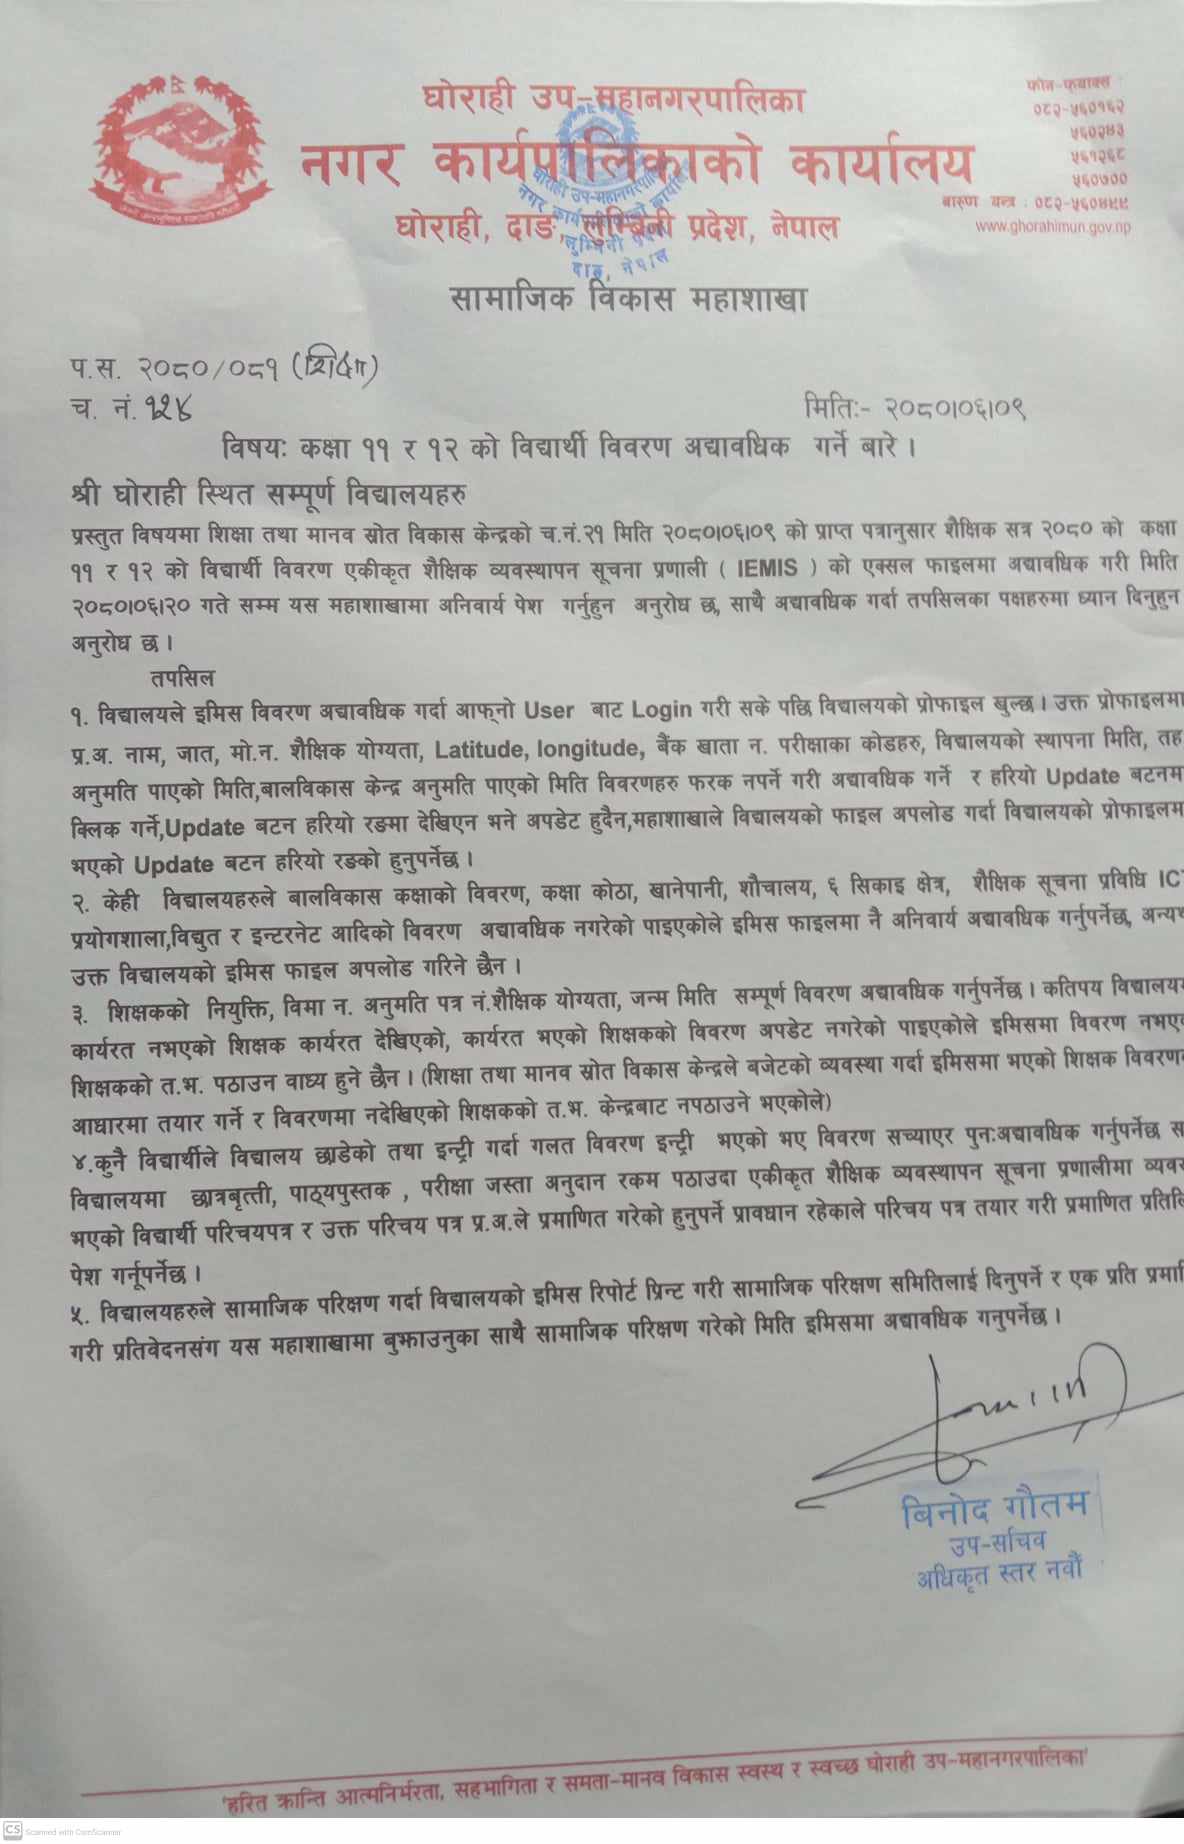 घोराही उप-महानगरपालिका
नगर कार्यपालिकाको कार्यालय
घोराही, दाङ, लुम्बिनी प्रदेश, नेपाल
फोन-फ्याक्स :
०८२-५६०१६२
५६०२४३
५६१२६८
५६०७००
बारुण यन्त्र : ०८२-५६०४९९
www.ghorahimun.gov.np
घोराही उप-महानगरपालिका
नगर कार्यपालिकाको कार्यालय
लुम्बिनी प्रदेश
दाङ, नेपाल
सामाजिक विकास महाशाखा
प.स. २०८०/०८१ (शिक्षा)
च. नं. १२४
मितिः- २०८०।०६।०९
विषयः कक्षा ११ र १२ को विद्यार्थी विवरण अद्यावधिक गर्ने बारे ।
श्री घोराही स्थित सम्पूर्ण विद्यालयहरु
प्रस्तुत विषयमा शिक्षा तथा मानव स्रोत विकास केन्द्रको च.नं.२१ मिति २०८०।०६।०९ को प्राप्त पत्रानुसार शैक्षिक सत्र २०८० को कक्षा
११ र १२ को विद्यार्थी विवरण एकीकृत शैक्षिक व्यवस्थापन सूचना प्रणाली ( IEMIS ) को एक्सल फाइलमा अद्यावधिक गरी मिति
२०८०।०६।२० गते सम्म यस महाशाखामा अनिवार्य पेश गर्नुहुन अनुरोध छ, साथै अद्यावधिक गर्दा तपसिलका पक्षहरुमा ध्यान दिनुहुन
अनुरोध छ ।
तपसिल
१. विद्यालयले इमिस विवरण अद्यावधिक गर्दा आफ्नो User बाट Login गरी सके पछि विद्यालयको प्रोफाइल खुल्छ । उक्त प्रोफाइलमा
प्र.अ. नाम, जात, मो.न. शैक्षिक योग्यता, Latitude, longitude, बैंक खाता न. परीक्षाका कोडहरु, विद्यालयको स्थापना मिति, तह
अनुमति पाएको मिति,बालविकास केन्द्र अनुमति पाएको मिति विवरणहरु फरक नपर्ने गरी अद्यावधिक गर्ने र हरियो Update बटनम
क्लिक गर्ने,Update बटन हरियो रङमा देखिएन भने अपडेट हुदैन,महाशाखाले विद्यालयको फाइल अपलोड गर्दा विद्यालयको प्रोफाइलम
भएको Update बटन हरियो रङको हुनुपर्नेछ ।
२. केही विद्यालयहरुले बालविकास कक्षाको विवरण, कक्षा कोठा, खानेपानी, शौचालय, ६ सिकाइ क्षेत्र, शैक्षिक सूचना प्रविधि IC
प्रयोगशाला,विद्युत र इन्टरनेट आदिको विवरण अद्यावधिक नगरेको पाइएकोले इमिस फाइलमा नै अनिवार्य अद्यावधिक गर्नुपर्नेछ,
उक्त विद्यालयको इमिस फाइल अपलोड गरिने छैन ।
३. शिक्षकको नियुक्ति, विमा न. अनुमति पत्र नं.शैक्षिक योग्यता, जन्म मिति सम्पूर्ण विवरण अद्यावधिक गर्नुपर्नेछ । कतिपय
कार्यरत नभएको शिक्षक कार्यरत देखिएको, कार्यरत भएको शिक्षकको विवरण अपडेट नगरेको पाइएकोले इमिसमा विवरण
शिक्षकको त.भ. पठाउन वाध्य हुने छैन । (शिक्षा तथा मानव स्रोत विकास केन्द्रले बजेटको व्यवस्था गर्दा इमिसमा भएको शिक्षक
आधारमा तयार गर्ने र विवरणमा नदेखिएको शिक्षकको त.भ. केन्द्रबाट नपठाउने भएकोले)
४.कुनै विद्यार्थीले विद्यालय छाडेको तथा इन्ट्री गर्दा गलत विवरण इन्ट्री भएको भए विवरण सच्याएर पुनःअद्यावधिक गर्नुपर्नेछ
विद्यालयमा छात्रबृत्ती, पाठ्यपुस्तक , परीक्षा जस्ता अनुदान रकम पठाउदा एकीकृत शैक्षिक व्यवस्थापन सूचना प्रणालीमा
भएको विद्यार्थी परिचयपत्र र उक्त परिचय पत्र प्र.अ.ले प्रमाणित गरेको हुनुपर्ने प्रावधान रहेकाले परिचय पत्र तयार गरी प्रमाणित
पेश गर्नूपर्नेछ ।
५. विद्यालयहरुले सामाजिक परिक्षण गर्दा विद्यालयको इमिस रिपोर्ट प्रिन्ट गरी सामाजिक परिक्षण समितिलाई दिनुपर्ने र एक प्रति
गरी प्रतिवेदनसंग यस महाशाखामा बुझाउनुका साथै सामाजिक परिक्षण गरेको मिति इमिसमा अद्यावधिक गनुपर्नेछ ।
बिनोद गौतम
उप-सचिव
अधिकृत स्तर नवौं
'हरित क्रान्ति आत्मनिर्भरता, सहभागिता र समता-मानव विकास स्वस्थ र स्वच्छ घोराही उप-महानगरपालिका'
CS Scanned with CamScanner